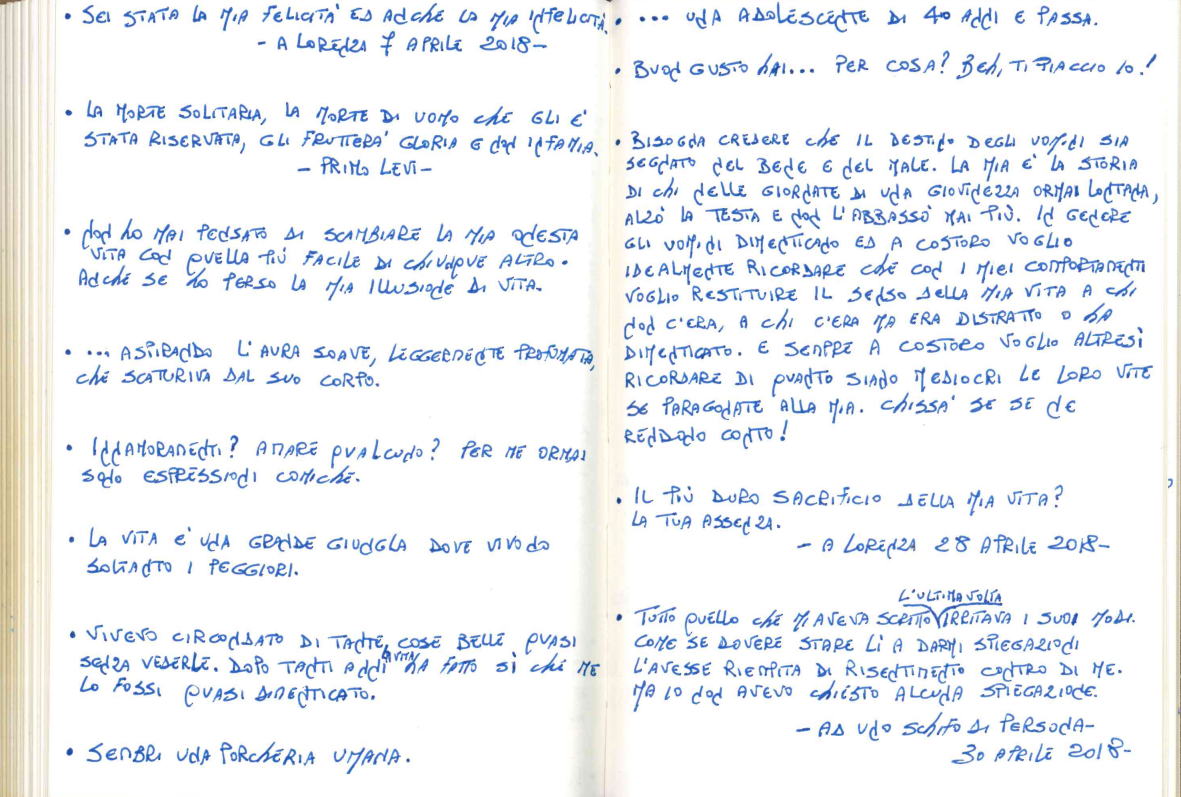 • SEI STATA LA MIA FELICITÀ ED ANCHE LA MIA INFELICITÀ.
- A LORENZA 7 APRILE 2018-
• LA MORTE SOLITARIA, LA MORTE DI UOMO CHE GLI È
STATA RISERVATA, GLI FRUTTERA' GLORIA E NON INFAMIA.
- PRIMO LEVI-
• NON HO MAI PENSATO DI SCAMBIARE LA MIA ONESTA
VITA CON QUELLA PIÙ FACILE DI CHIUNQUE ALTRO.
ANCHE SE HO PERSO LA MIA ILLUSIONE DI VITA.
• ... ASPIRANDO L'AURA SOAVE, LEGGERMENTE PROFUMATA,
CHE SCATURIVA DAL SUO CORPO.
• INNAMORAMENTI? AMARE QUALCUNO? PER ME ORMAI
SONO ESPRESSIONI COMICHE.
• LA VITA E' UNA GRANDE GIUNGLA DOVE VIVONO
SOLTANTO I PEGGIORI.
• VIVEVO CIRCONDATO DI TANTE COSE BELLE QUASI
SENZA VEDERLE. DOPO TANTI ANNI LA VITA HA FATTO SÌ CHE ME
LO FOSSI QUASI DIMENTICATO.
• SEMBRI UNA PORCHERIA UMANA.
• ... UNA ADOLESCENTE DI 40 ANNI E PASSA.
• BUON GUSTO HAI... PER COSA? BEH, TI PIACCIO IO!
• BISOGNA CREDERE CHE IL DESTINO DEGLI UOMINI SIA
SEGNATO NEL BENE E NEL MALE. LA MIA E' LA STORIA
DI CHI NELLE GIORNATE DI UNA GIOVINEZZA ORMAI LONTANA,
ALZÒ LA TESTA E NON L'ABBASSÒ MAI PIÙ. IN GENERE
GLI UOMINI DIMENTICANO ED A COSTORO VOGLIO
IDEALMENTE RICORDARE CHE CON I MIEI COMPORTAMENTI
VOGLIO RESTITUIRE IL SENSO DELLA MIA VITA A CHI
NON C'ERA, A CHI C'ERA MA ERA DISTRATTO O HA
DIMENTICATO. E SEMPRE A COSTORO VOGLIO ALTRESÌ
RICORDARE DI QUANTO SIANO MEDIOCRI LE LORO VITE
SE PARAGONATE ALLA MIA. CHISSA' SE SE NE
RENDONO CONTO!
• IL PIÙ DURO SACRIFICIO DELLA MIA VITA?
LA TUA ASSENZA.
- A LORENZA 28 APRILE 2018-
• TUTTO QUELLO CHE MI AVEVA SCRITTO L'ULTIMA VOLTA IRRITAVA I SUOI MODI.
COME SE DOVERE STARE LÌ A DARMI SPIEGAZIONI
L'AVESSE RIEMPITA DI RISENTIMENTO CONTRO DI ME.
MA IO NON AVEVO CHIESTO ALCUNA SPIEGAZIONE.
- AD UNO SCHIFO DI PERSONA-
30 APRILE 2018-